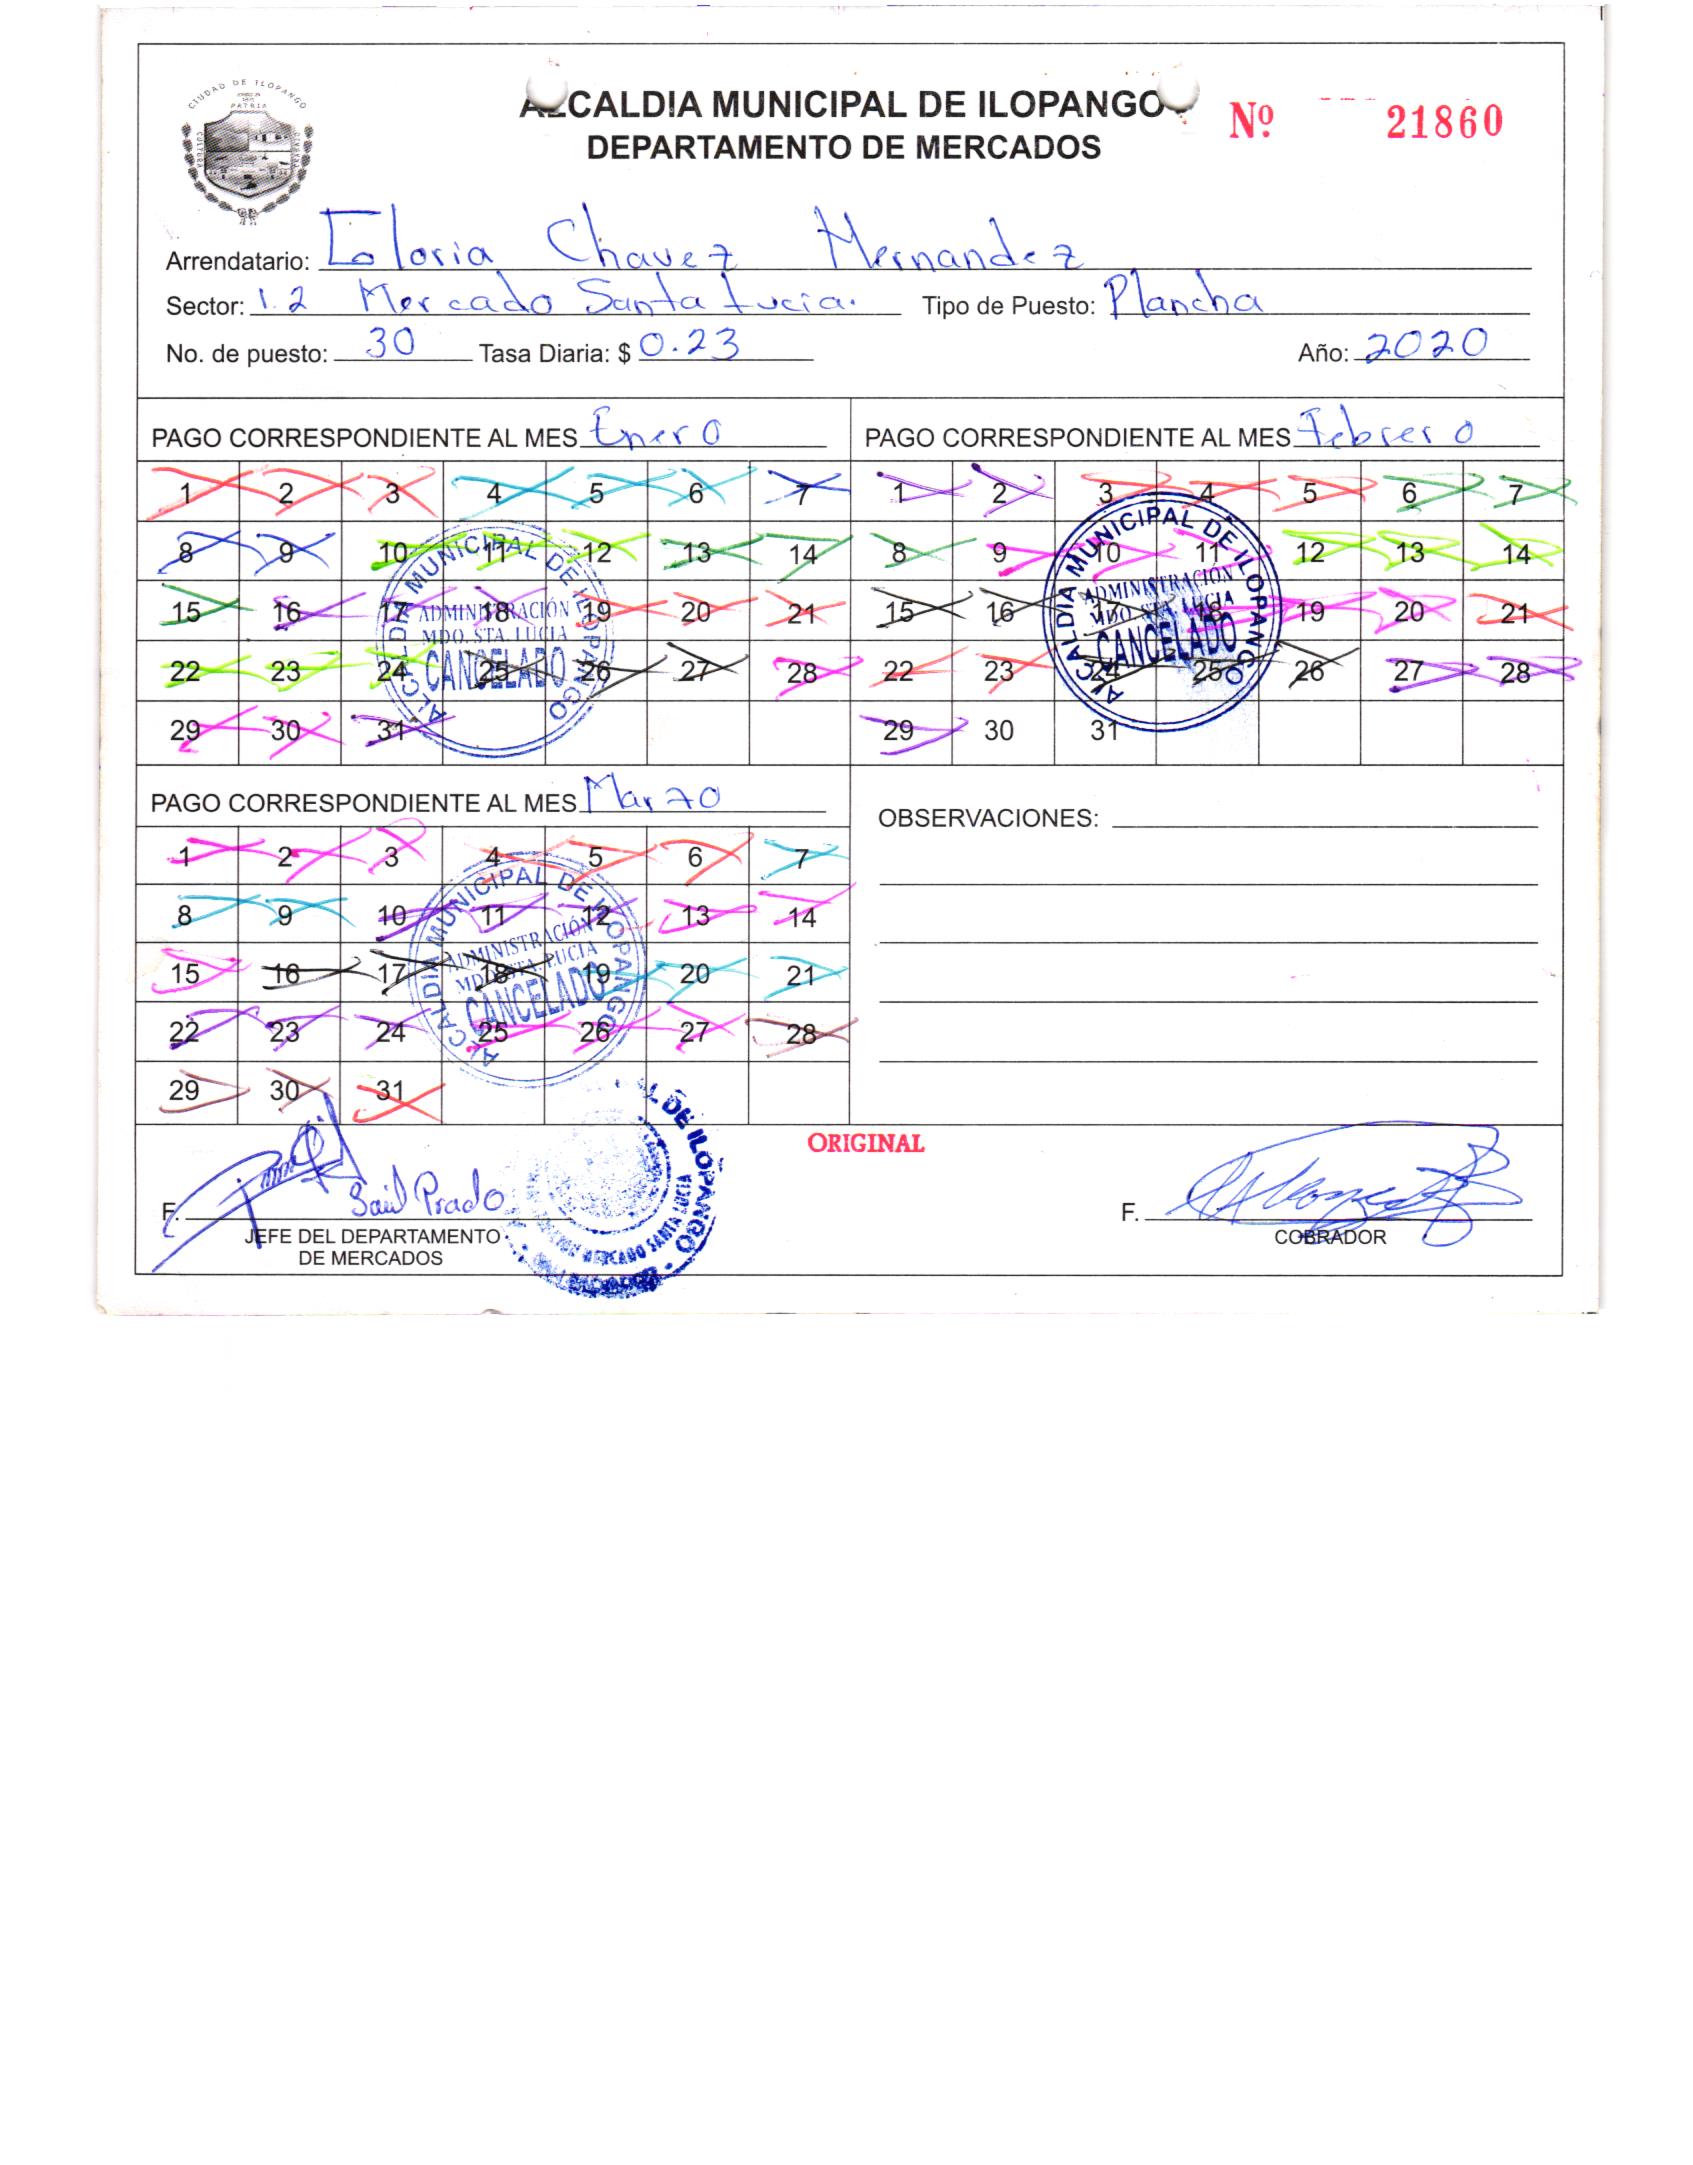 CIUDAD DE ILOPANGO
PATRIA
CULTURA
ALCALDIA MUNICIPAL DE ILOPANGO
DEPARTAMENTO DE MERCADOS
Nº 21860
Arrendatario: Gloria Chavez Hernandez
Sector: 1.2 Mercado Santa Lucia. Tipo de Puesto: Plancha
No. de puesto: 30 Tasa Diaria: $ 0.23 Año: 2020
PAGO CORRESPONDIENTE AL MES Enero
1 2 3 4 5 6 7
8 9 10 11 12 13 14
15 16 17 18 19 20 21
22 23 24 25 26 27 28
29 30 31
ALCALDIA MUNICIPAL DE ILOPANGO
ADMINISTRACIÓN
MDO. STA. LUCIA
CANCELADO
PAGO CORRESPONDIENTE AL MES Febrero
1 2 3 4 5 6 7
8 9 10 11 12 13 14
15 16 17 18 19 20 21
22 23 24 25 26 27 28
29 30 31
ALCALDIA MUNICIPAL DE ILOPANGO
ADMINISTRACIÓN
MDO. STA. LUCIA
CANCELADO
PAGO CORRESPONDIENTE AL MES Marzo
1 2 3 4 5 6 7
8 9 10 11 12 13 14
15 16 17 18 19 20 21
22 23 24 25 26 27 28
29 30 31
ALCALDIA MUNICIPAL DE ILOPANGO
ADMINISTRACIÓN
MDO. STA. LUCIA
CANCELADO
OBSERVACIONES:
ORIGINAL
F. Saúl Prado
JEFE DEL DEPARTAMENTO
DE MERCADOS
DE ILOPANGO
MERCADO SANTA LUCIA
F.
COBRADOR